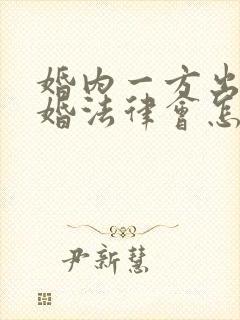 婚内一方出
婚法律會怎
尹新慧